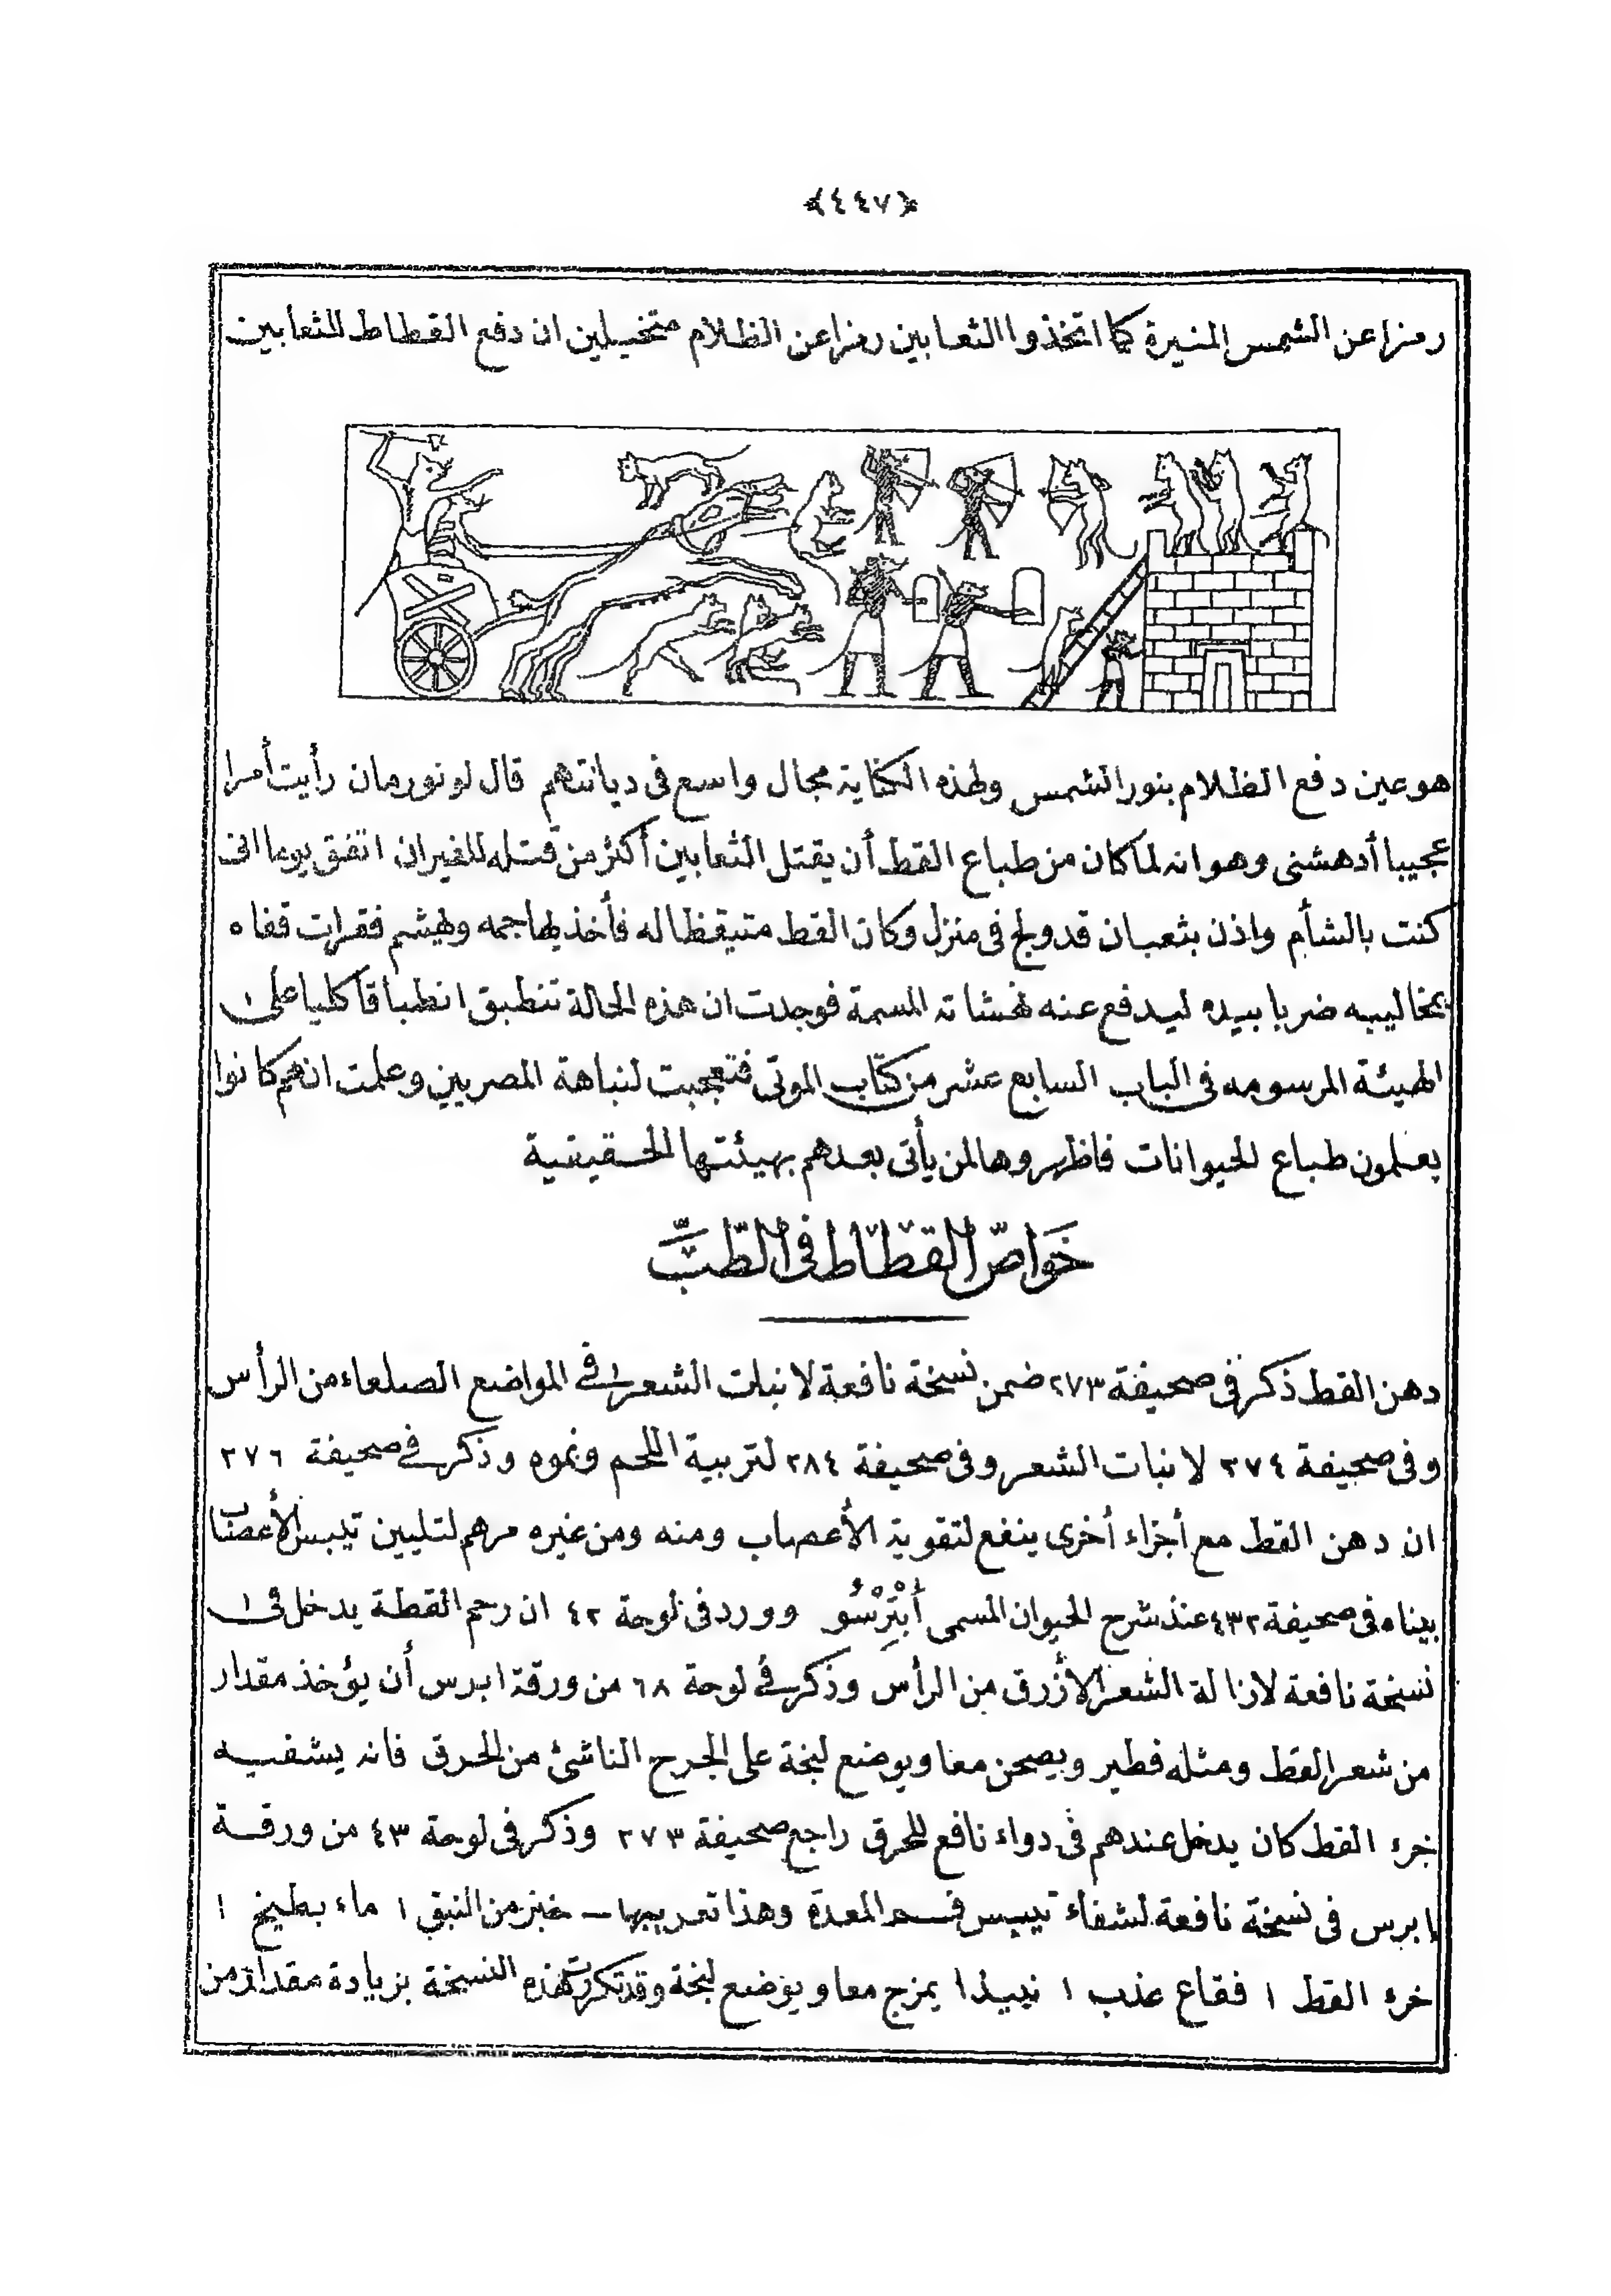 ﴿٤٤٧﴾
رمزا عن الشمس المنيرة كما اتخذوا الثعابين رمزا عن الظلام متخيلين ان دفع القطاط للثعابين
هو عين دفع الظلام بنور الشمس ولهذه الكناية مجال واسع فى ديانتهم قال لونورمان رأيت أمرا
عجيبا أدهشنى وهو انه لما كان من طباع القط أن يقتل الثعابين أكثر من قتله للفيران اتفق يوما انى
كنت بالشأم واذن بثعبان قد ولج فى منزل وكان القط متيقظا له فأخذ يهاجمه وهشم فقرات قفاه
بمخاليبه ضربا بيده ليدفع عنه نهشاته المسمة فوجدت ان هذه الحالة تنطبق انطباقا كليا على
الهيئة المرسومه فى الباب السابع عشر من كتاب الموتى فتعجبت لنباهة المصريين وعلمت انهم كانوا
يعلمون طباع الحيوانات فاظهروها لمن يأتى بعدهم بهيئتها الحقيقية
خَوَاصّ القطاط فى الطّبّ
دهن القط ذكر فى صحيفة ٢٧٣ ضمن نسخة نافعة لانبات الشعر فى المواضع الصلعاء من الرأس
وفى صحيفة ٢٧٤ لانبات الشعر وفى صحيفة ٢٨٤ لتربية اللحم ونموه وذكر فى صحيفة ٢٧٦
ان دهن القط مع أجزاء أخرى ينفع لتقوية الأعصاب ومنه ومن غيره مرهم لتليين تيبس الأعصاب
بيناه فى صحيفة ٤٣٢ عند شرح الحيوان المسمى أَبْتِرْسُو وورد فى لوحة ٤٢ ان رحم القطة يدخل فى
نسخة نافعة لازالة الشعر الأزرق من الرأس وذكر فى لوحة ٦٨ من ورقة ابرس أن يؤخذ مقدار
من شعر القط ومثله فطير ويصحن معا ويوضع لبخة على الجرح الناشئ من الحرق فانه يشفيه
خرء القط كان يدخل عندهم فى دواء نافع للحرق راجع صحيفة ٢٧٣ وذكر فى لوحة ٤٣ من ورقة
ابرس فى نسخة نافعة لشفاء تيبس فم المعدة وهذا تعريبها — خبز من النبق ١ ماء بطيخ ١
خرء القط ١ فقاع عذب ١ نبيذ ١ يمزج معا ويوضع لبخة وقد تكررت هذه النسخة بزيادة مقدار من